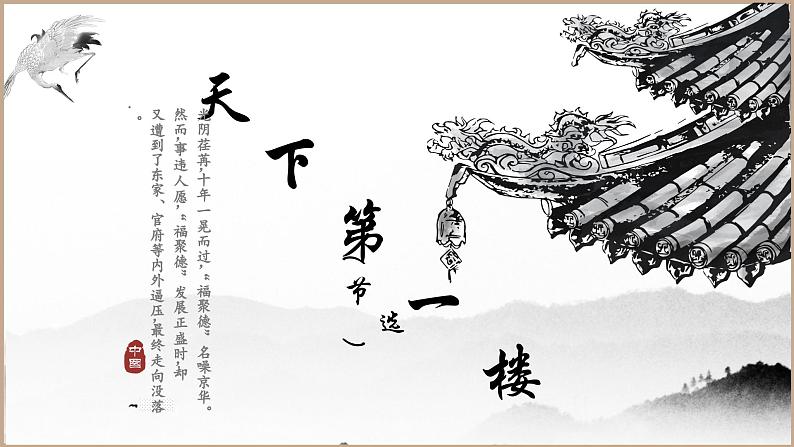 天下第一楼
节选）
光阴荏苒,十年一晃而过,“福聚德”名噪京华。
然而,事违人愿,“福聚德”发展正盛时,却
又遭到了东家、官府等内外逼压,最终走向没落
。
中国